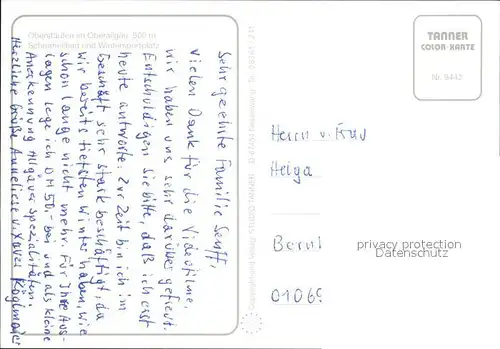 Oberstaufen im Oberallgäu, 800 m
Schrothheilbad und Wintersportplatz
Sehr geehrte Familie Senft,
vielen Dank für die Videofilme,
wir haben uns sehr darüber gefreut.
Entschuldigen Sie bitte, daß ich erst
heute antworte. Zur Zeit bin ich im
Geschäft sehr stark beschäftigt, da
wir bereits tiefsten Winter haben, wie
schon lange nicht mehr. Für Ihre Aus-
lagen lege ich DM 50,- bei und als kleine
Anerkennung Allgäuer Spezialitäten.
Herzliche Grüße Anneliese u. Xaver Köglmaier
Copyright und Verlag: STUDIO TANNER
TANNER
COLOR-KARTE
Nr. 8442
Herrn u. Frau
Helga
Bernd
0106
privacy protection
Datenschutz